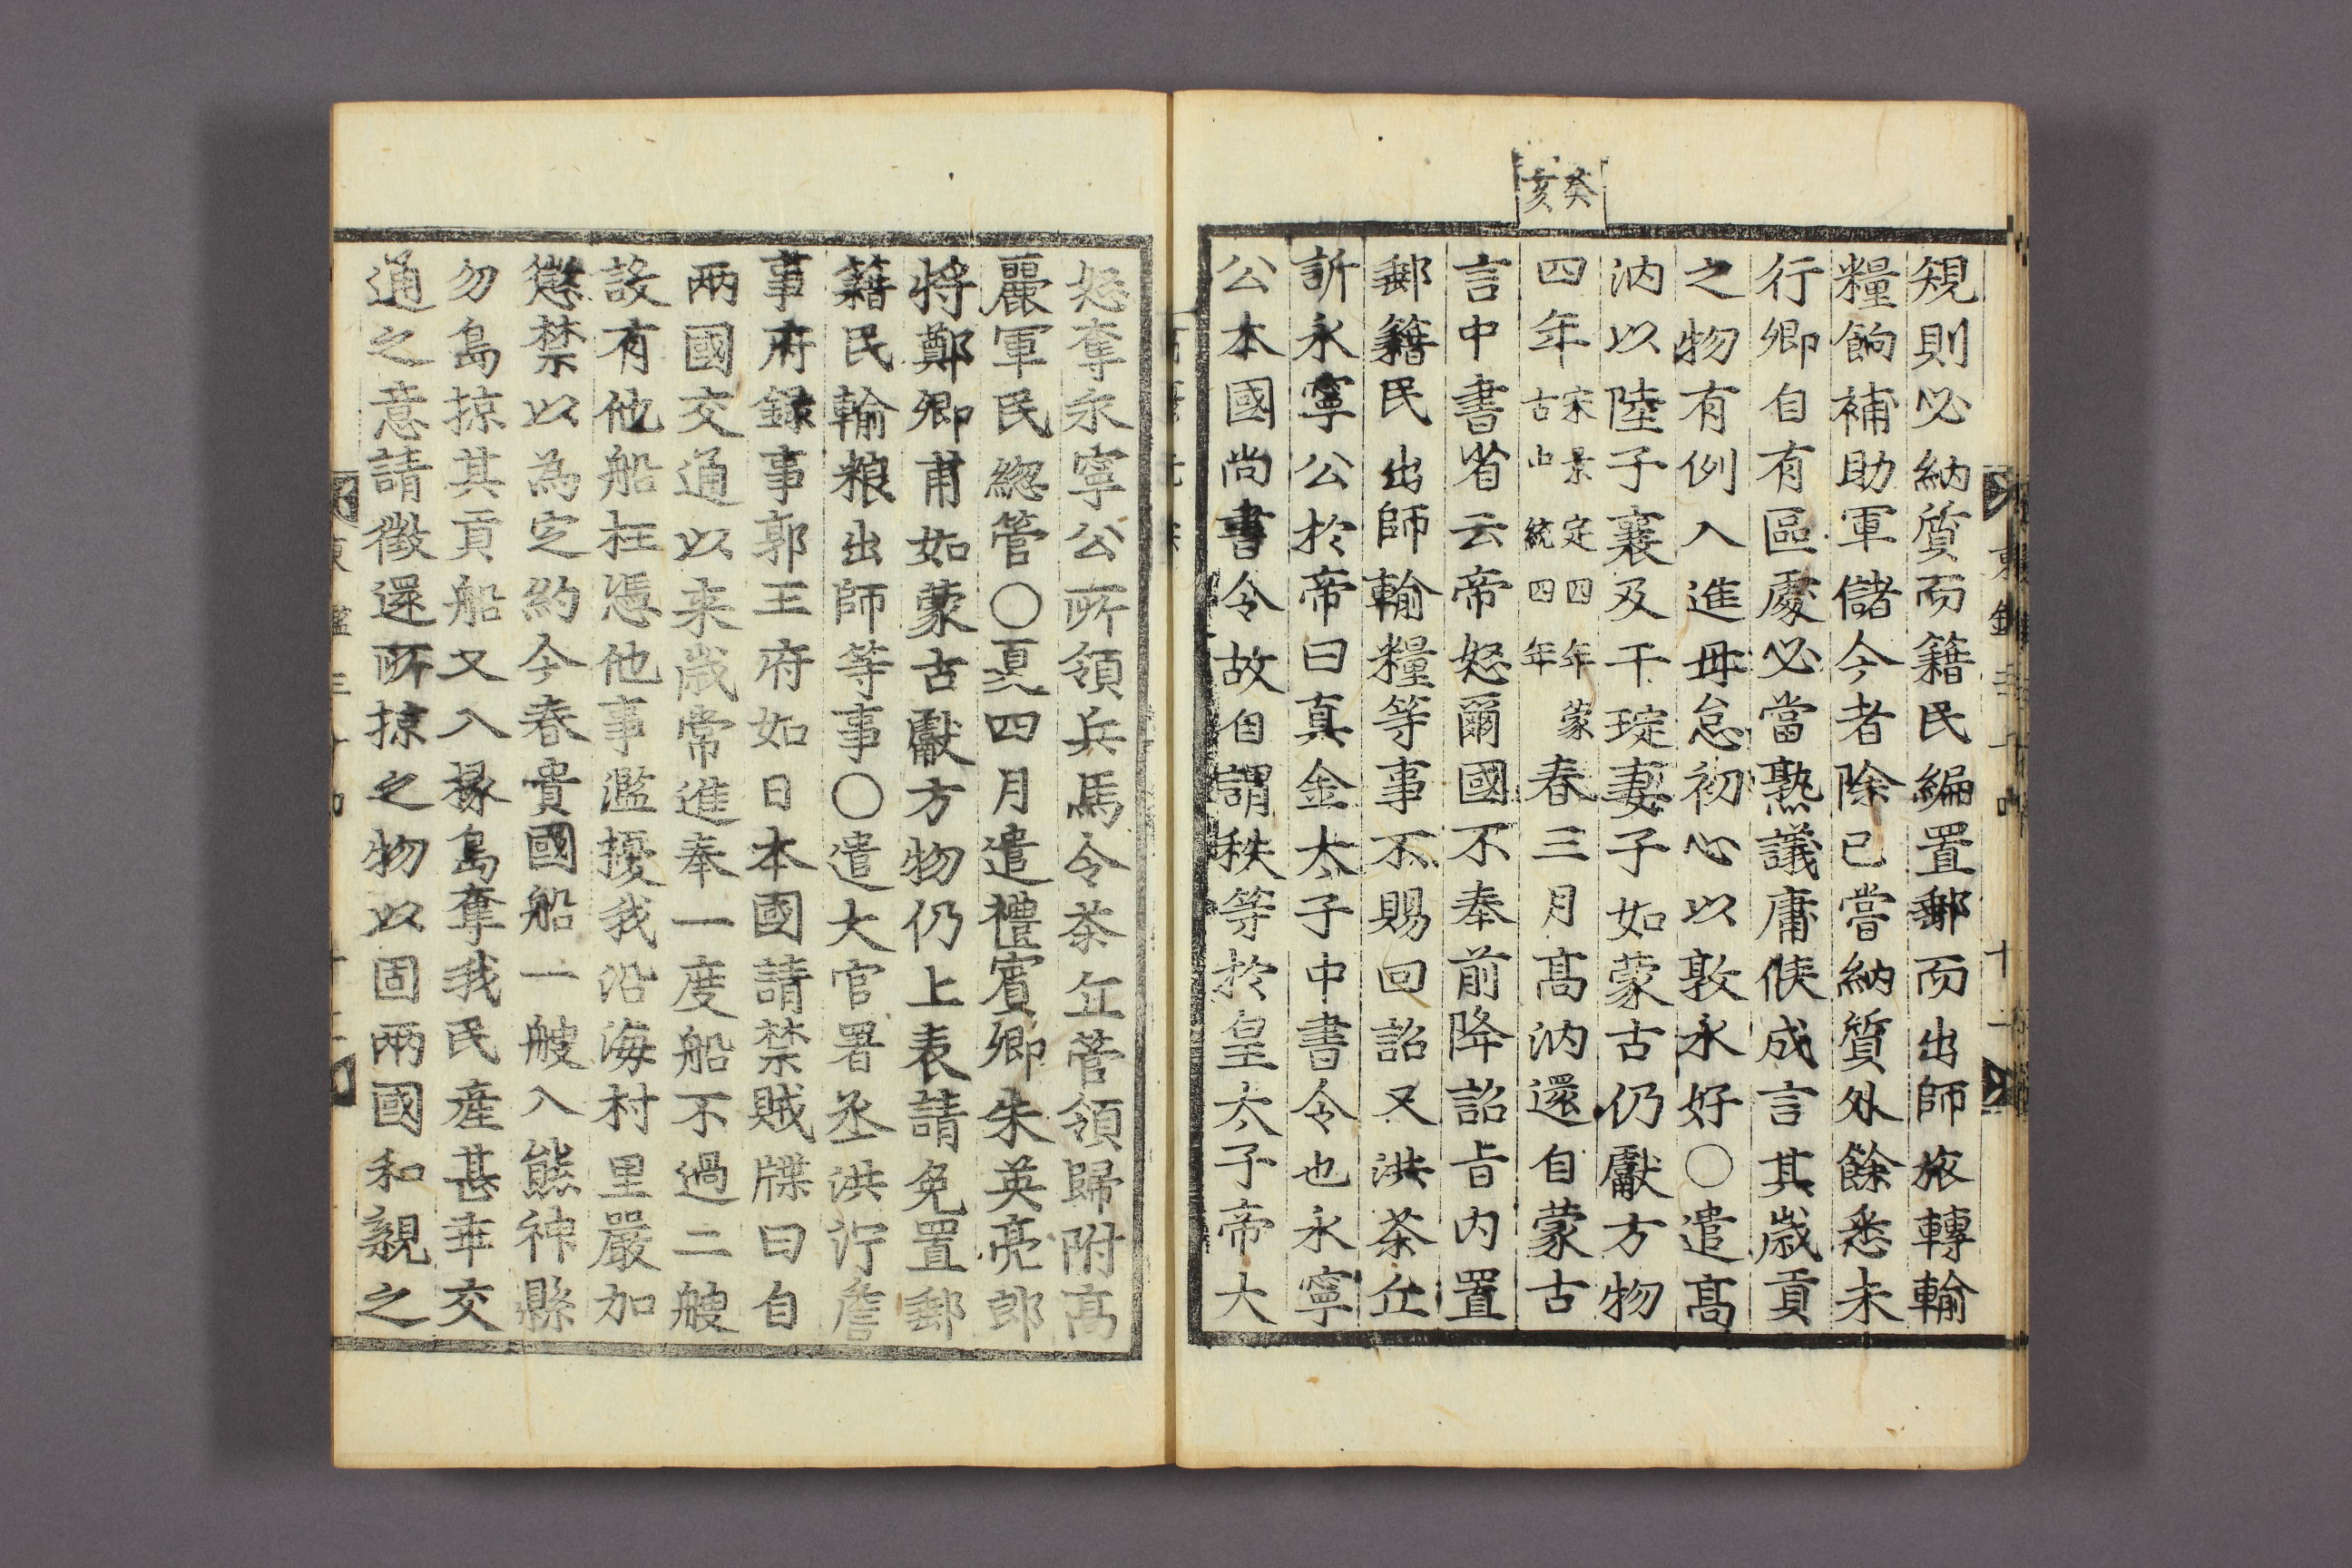 規則必納質而籍民編置郵而出師旅轉輸
糧餉補助軍儲今者除已嘗納質外餘悉未
行卿自有區處必當熟議庸俟成言其歲貢
之物有例入進毋怠初心以敦永好○遣高
汭以陸子襄及于琔妻子如蒙古仍獻方物
癸亥
四年宋景定四年蒙古中統四年春三月高汭還自蒙古
言中書省云帝怒爾國不奉前降詔旨內置
郵籍民出師輸糧等事不賜回詔又洪茶丘
訴永寧公於帝曰真金太子中書令也永寧
公本國尚書令故自謂秩等於皇太子帝大
怒奪永寧公所領兵馬令茶丘管領歸附高
麗軍民緫管○夏四月遣禮賓卿朱英亮郎
將鄭卿甫如蒙古獻方物仍上表請免置郵
籍民輸粮出師等事○遣大官署丞洪泞詹
事府録事郭王府如日本國請禁賊牒曰自
兩國交通以来歲常進奉一度船不過二艘
設有他船枉憑他事濫擾我沿海村里嚴加
懲禁以為定約今春貴國船一艘入熊神縣
勿島掠其貢船又入椽島奪我民產甚乖交
通之意請徵還所掠之物以固兩國和親之